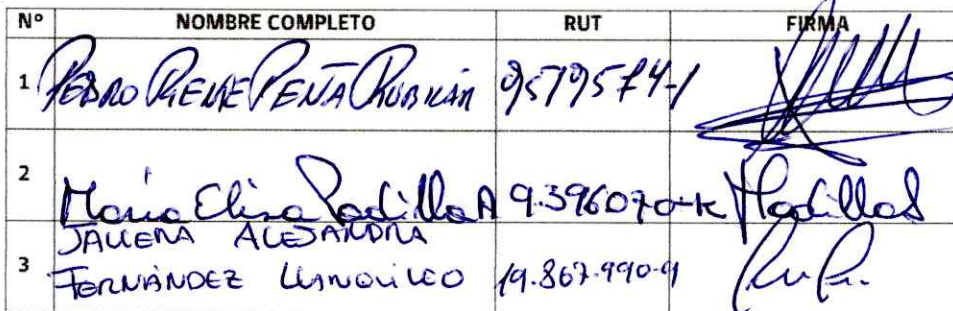 Nº NOMBRE COMPLETO RUT FIRMA
1 PEDRO RENE PEÑA 9579574-1
2 Maria Elisa Padilla A 9.396070-K
JAVIERA ALEJANDRA
3 FERNÁNDEZ LLANQUILEO 19.867.990-9